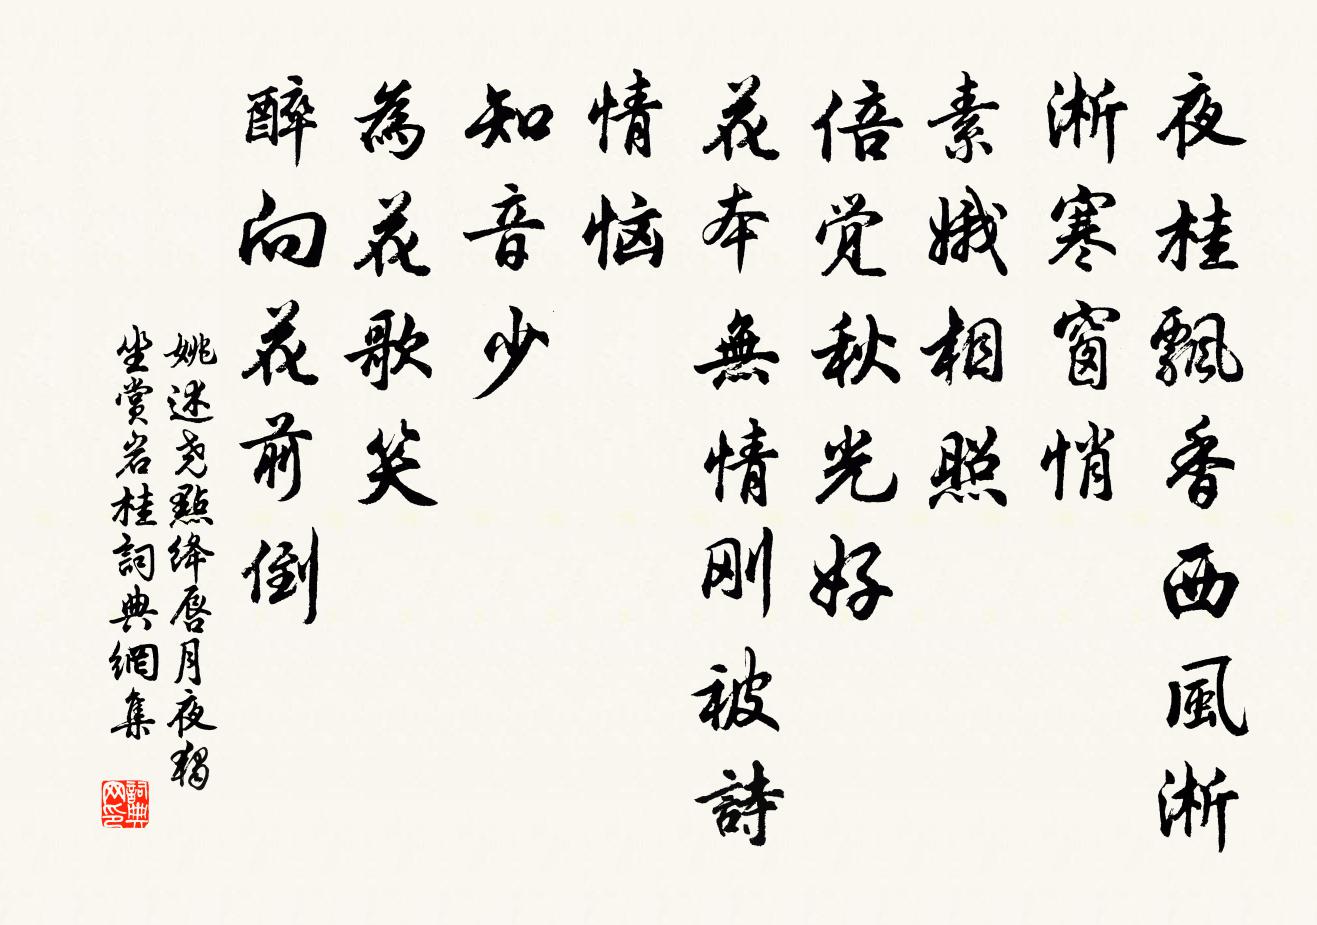 夜桂飄香西風淅
淅寒窗悄
素娥相照
倍覚秋光好
花本無情刚被詩
情恼
知音少
為花歌笑
醉向花前倒
姚述尧點绛唇月夜獨
坐赏岩桂詞典網集
詞典网印